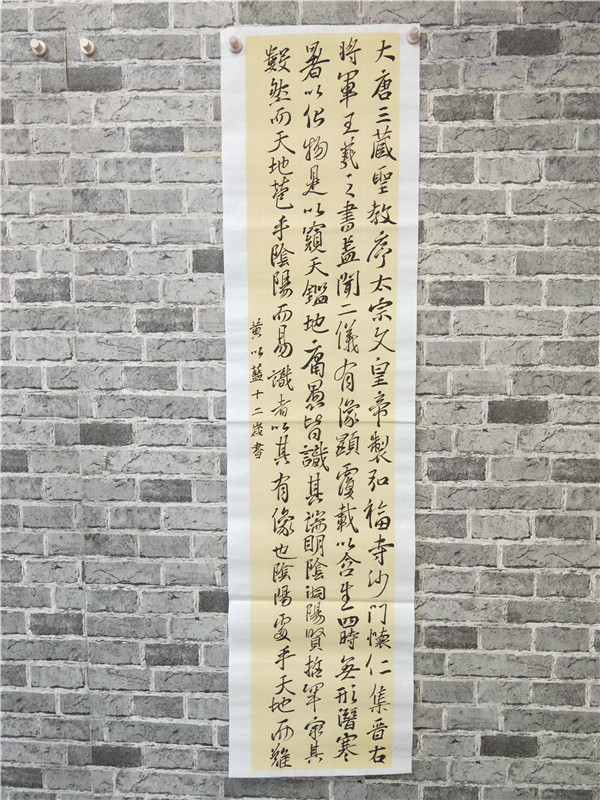 大唐三藏聖教序太宗文皇帝製弘福寺沙門懷仁集晋右
將軍王羲之書蓋聞二儀有像顯覆載以含生四時無形潛寒
暑以化物是以窺天鑑地庸愚皆識其端明陰洞陽賢哲罕窮其
數然而天地苞乎陰陽而易識者以其有像也陰陽處乎天地而難
黄以藍十二歲書